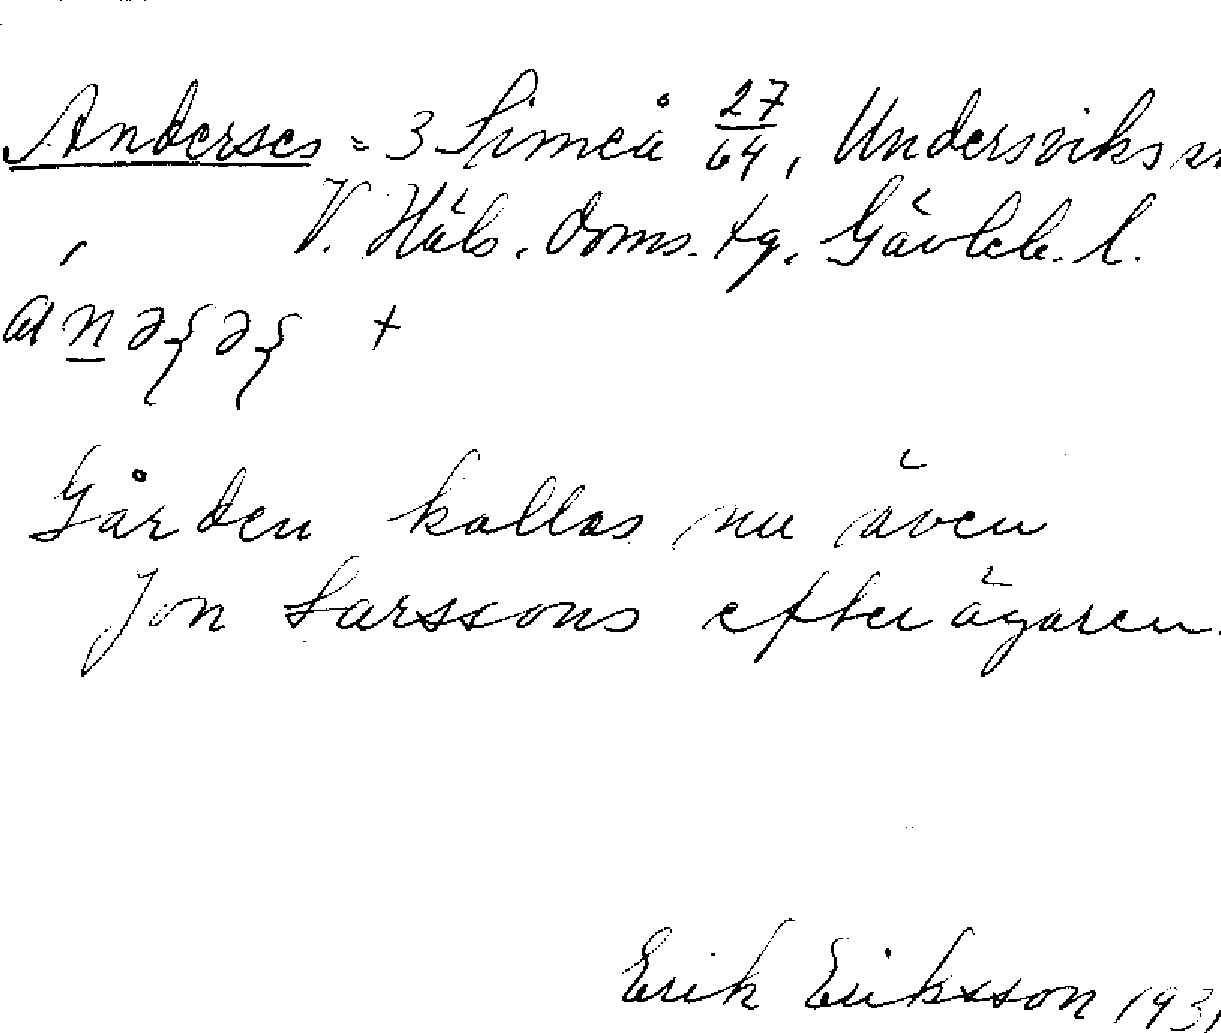 Anderses = 3 Simeå 27/64, Underviks sn
V. Häls. doms. tg. Gävleb. l.
Gården kallas nu även
Jon Larssons efter ägaren.
Erik Eriksson 193